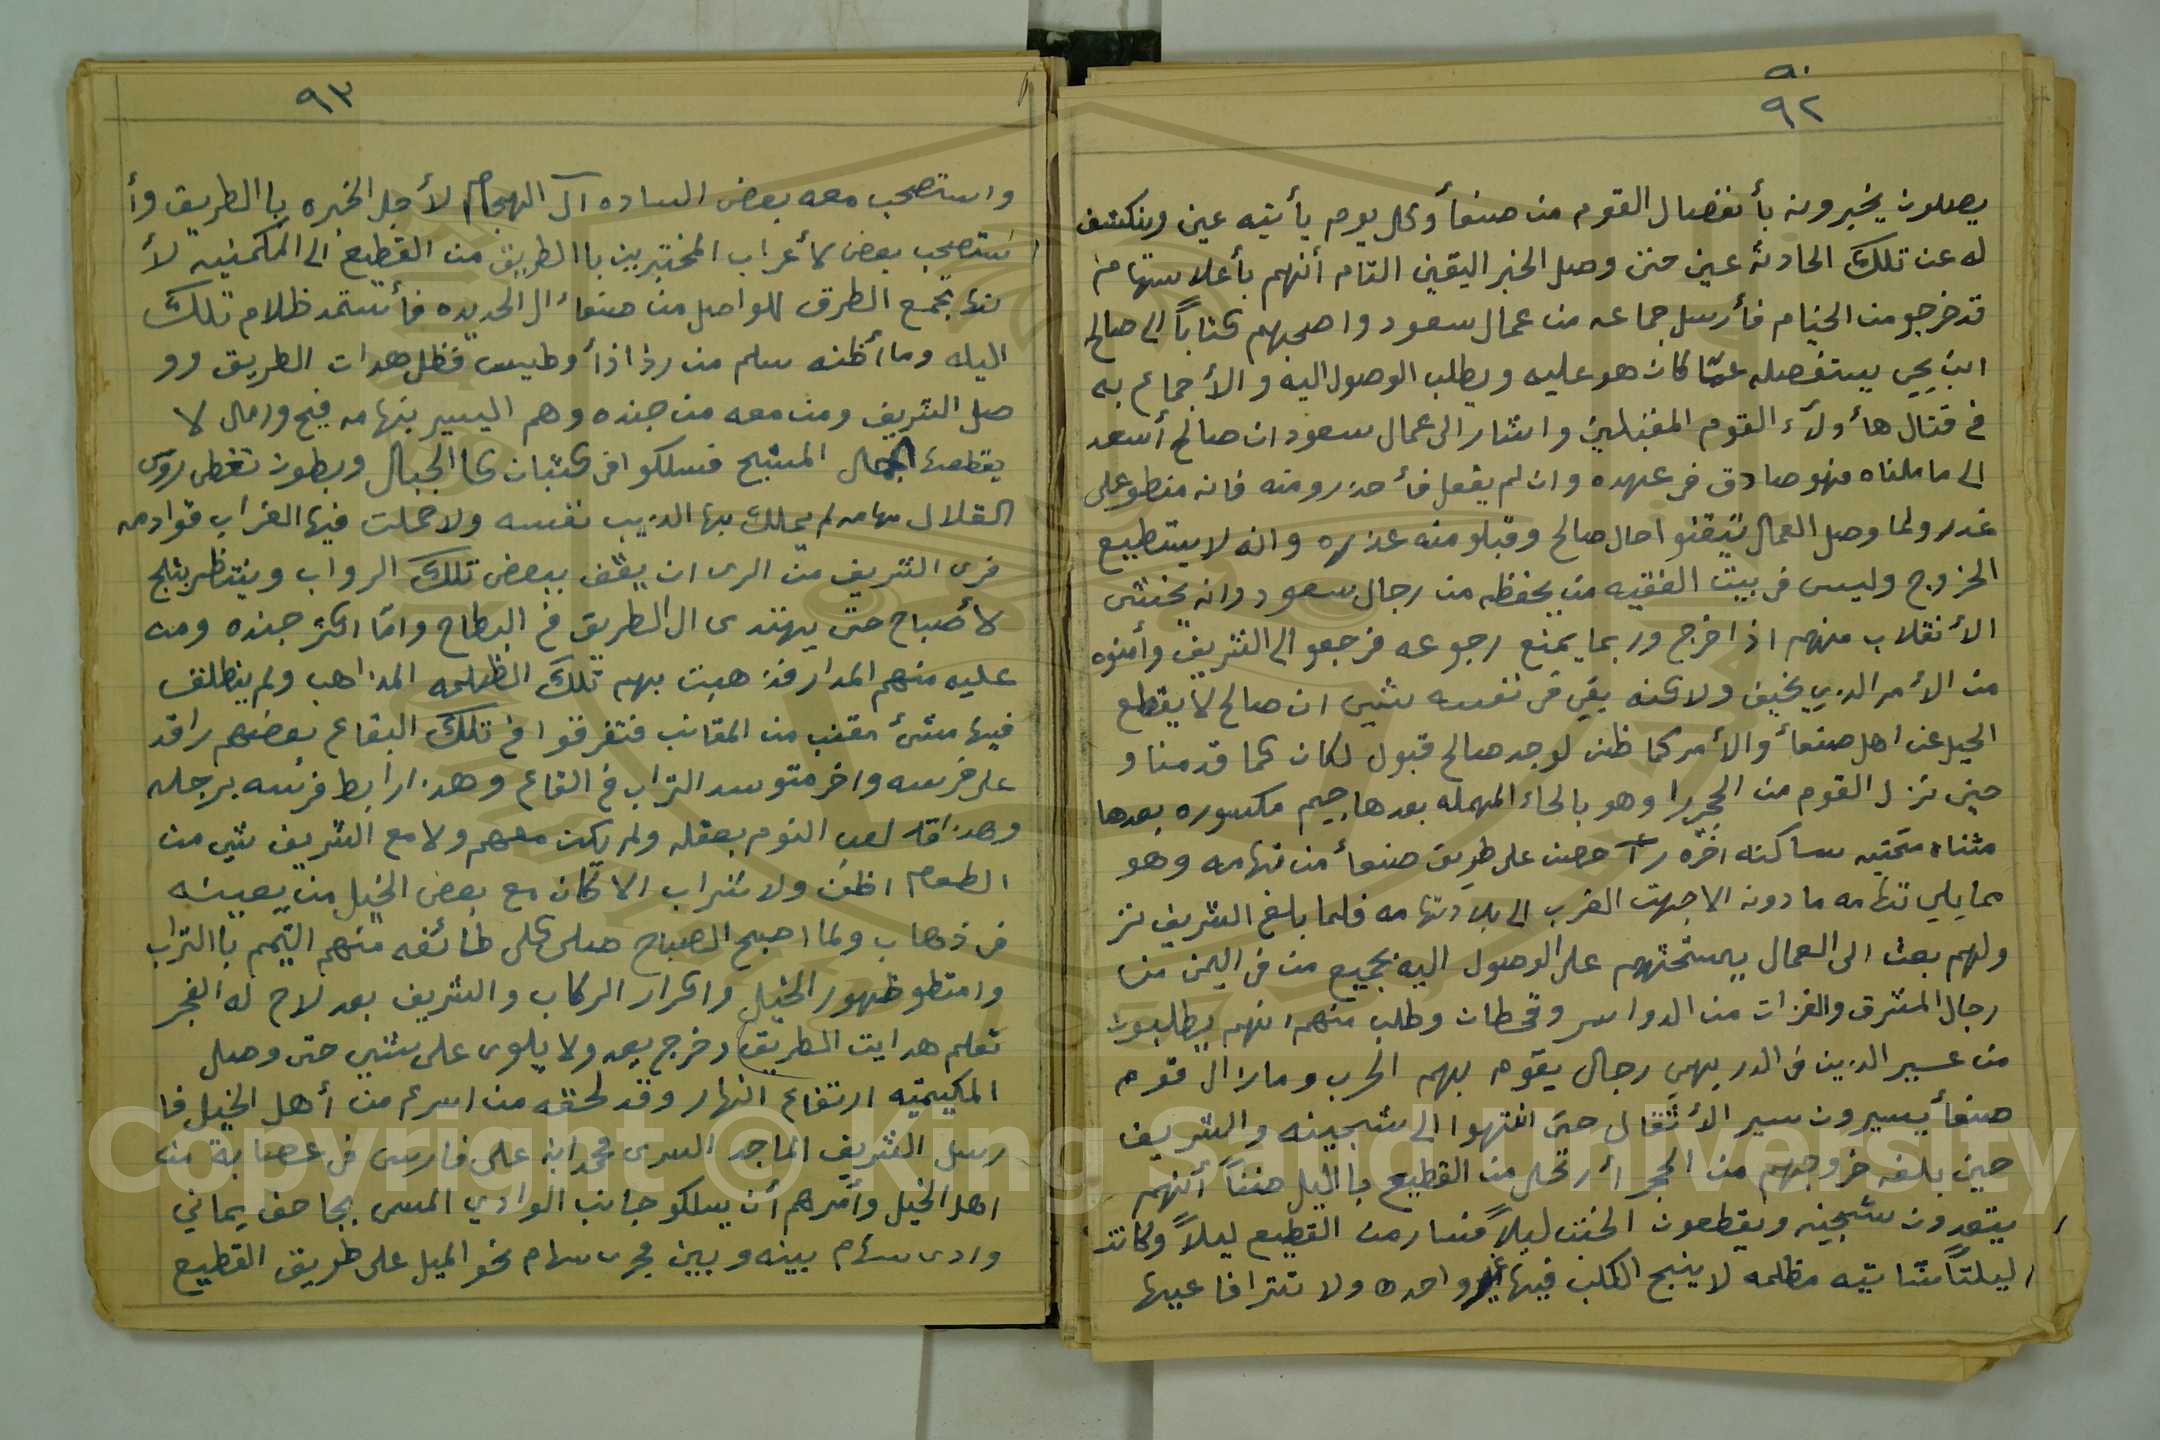 ٩٠
٩٢
يصلون يخبرونه بأنفضال القوم من صنعأ وكل يوم يأتيه عين وينكشف
له عن تلك الحادثة عين حتى وصل الخبر اليقين التام أنهم بأعلا سهام
قد خرجو من الخيام فأرسل جماعه من عمال سعود واصحبهم كتاباً الى صالح
ابن يحي يستفصله عمّا كان هو عليه ويطلب الوصول اليه والأجماع به
في قتال هأولآء القوم المقبلين واشار الى عمال سعود ان صالح أسعد
الى ما ملناه فهو صادق في عهده وان لم يفعل فأحذرو منه فانه منطو على
غدر ولما وصل العمال تيقنو احال صالح وقبلو منه عذره وانه لا يستطيع
الخروج وليس في بيت الفقيه من يحفظه من رجال سعود وانه يخشى
الأنقلاب منهم اذا خرج وربما يمنع رجوعه فرجعو الى الشريف وأمنوه
من الأمر الذي يخيف ولاكنه بقي في نفسه شئي ان صالح لا يقطع
الحبل عن اهل صنعأ والأمر كما ظن لوجد صالح قبول لكان كما قدمنا و
حين نزل القوم من الحجيرا وهو بالحاء المهمله بعدها جيم مكسوره بعدها
مثناه تحتيه ساكنه اخره رآ حصن على طريق صنعأ من تهامه وهو
مما يلي تهامه ما دونه الا جهت الغرب الى بلاد تهامه فلما بلغ الشريف نز
ولهم بعث الى العمال يستحثهم على الوصول اليه بجميع من في اليمن من
رجال المشرق والغزات من الدواسر وقحطان وطلب منهم انهم يطلبون
من عسير الذين في الدريهمي رجال يقوم بهم الحرب وما زال قوم
صنعأ يسيرون سير الأثقال حتى انتهوا الى شجينه والشريف
حين بلغه خروجهم من الحجر أرتحل من القطيع باليل ظناً أنهم
يتعدون شجينه ويقطعون الخبت ليلاً فسار من القطيع ليلاً وكانت
ليلتاً شاتيه مظلمه لا ينبح الكلب فيها غير واحدة ولا تترافا عيها
٩٣
واستصحب معه بعض الساده آل الهجام لأجل الخبره باالطريق وأ
ستصحب بعض لأعراب المختبرين باالطريق من القطيع الى المكمنيه لأ
نها تجمع الطرق للواصل من صنعاء الى الحديده فأستمد ظلام تلك
اليله وما أظنه سلم من رذاذأ وطيس فظل هدات الطريق وو
صل الشريف ومن معه من جنده وهم اليسير بتهامه فيح ورمال لا
يقطعها الجمال المشبح فسلكوا في كثبان كاالجبال وبطون تغطى رؤس
القلال مهامه لم يملك بها الذيب نفسه ولا حملت فيها الغراب قوادمه
فرى الشريف من الرى ان يقف ببعض تلك الرواب وينتظر بثلج
لأصباح حتى يهتدى الى الطريق في البطاح وامّا اكثر جنده ومن
عليه منهم المدار فذهبت بهم تلك الظلمه المذاهب ولم ينطلق
فيها مشئ مقنب من المقانب فتفرقوا في تلك البقاع بعضهم راقد
على فرسه واخر متوسد التراب في القاع وهذا رابط فرسه برجله
وهذا قد لعب النوم بعقله ولم يكن معهم ولا مع الشريف شئي من
الطعام اظن ولا شراب الا كان مع بعض الخيل من يعينه
في ذهاب ولما اصبح الصباح صلى كلى طائفه منهم التيمم باالتراب
وامتطو ظهور الخيل واكرار الركاب والشريف بعد لاح له الفجر
تعلم هدايت الطريق وخرج يعدو لا يلوى على شئي حتى وصل
المكيمنيه ارتفاع النهار وقد لحقه من اسرع من أهل الخيل فا
رسل الشريف الماجد السرى محمد ابن على فارس في عصابة من
اهل الخيل وأمرهم أن يسلكو جانب الوادي المسمى بجاحف يماني
وادى سهام بينه وبين مجرى سهام نحو الميل على طريق القطيع
Copyright © King Saud University